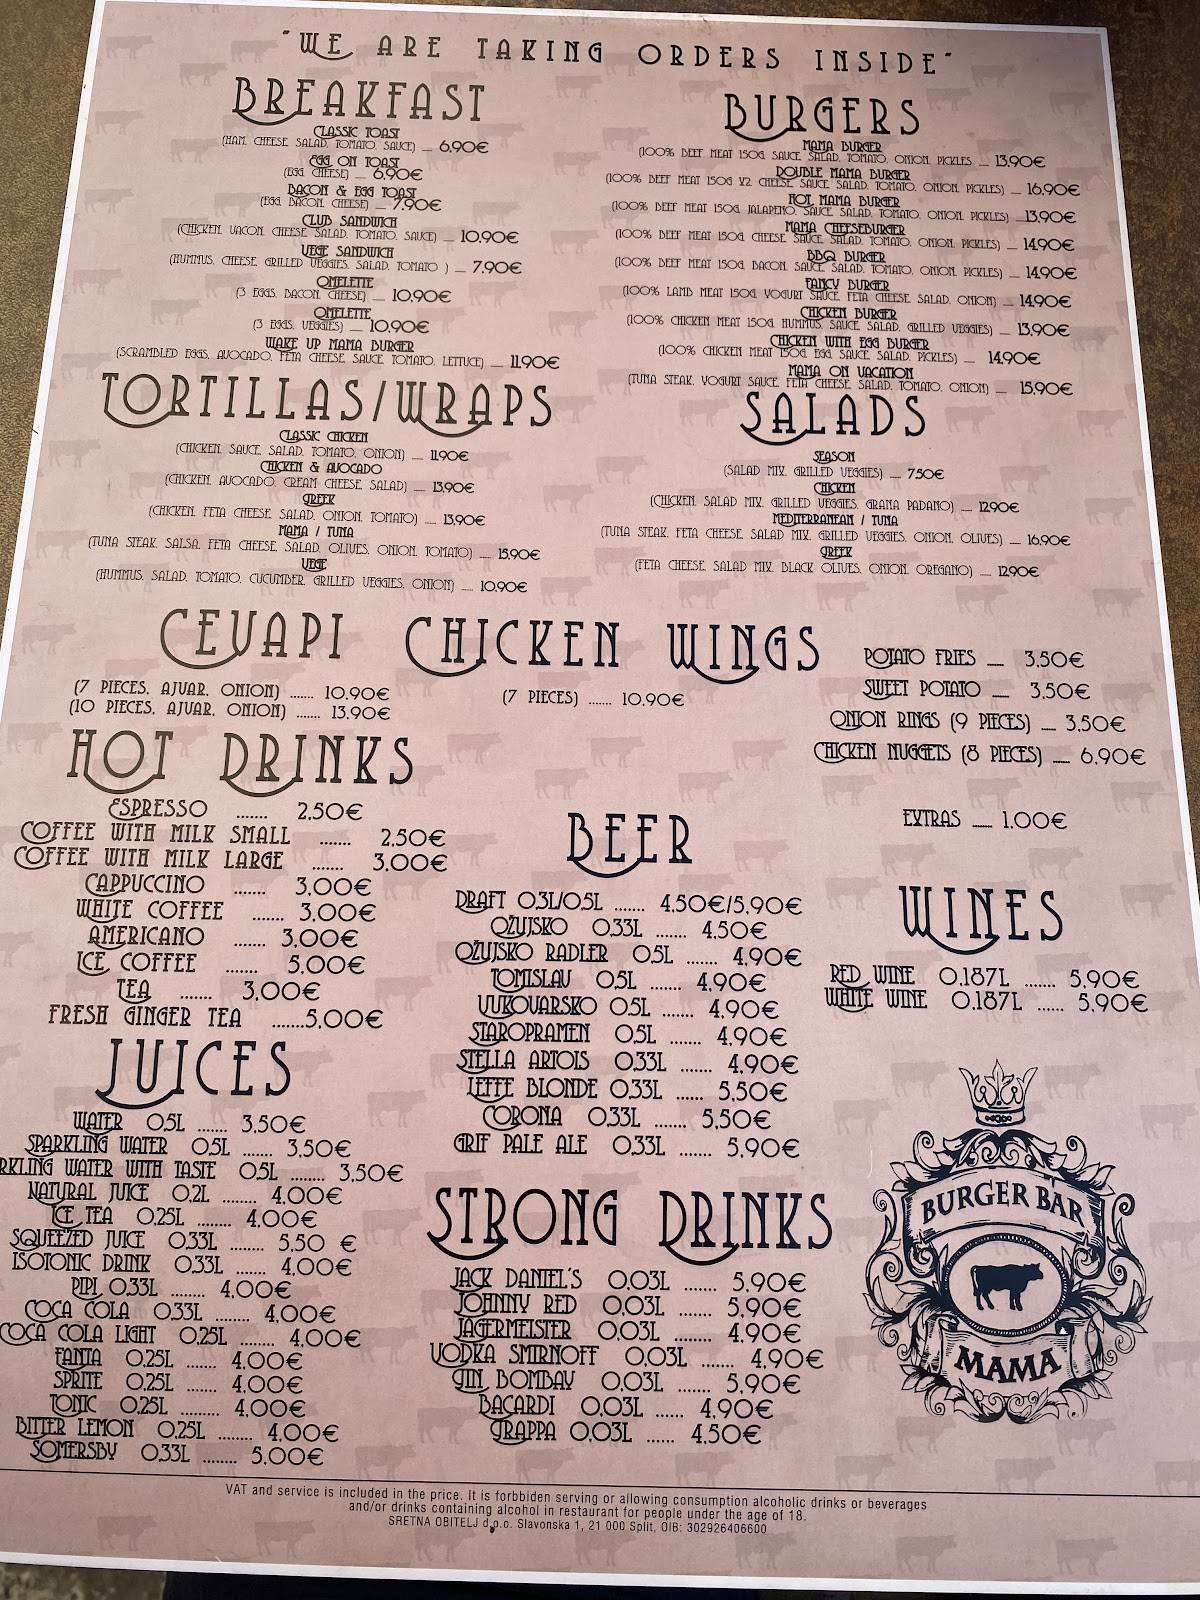 "WE ARE TAKING ORDERS INSIDE"
BREAKFAST
CLASSIC TOAST
(HAM, CHEESE, SALAD, TOMATO, SAUCE) __ 6,90€
EGG ON TOAST
(EGG, CHEESE) __ 6,90€
BACON & EGG TOAST
(EGG, BACON, CHEESE) __ 7,90€
CLUB SANDWICH
(CHICKEN, VACON, CHEESE, SALAD, TOMATO, SAUCE) __ 10,90€
VEGE SANDWICH
(HUMMUS, CHEESE, GRILLED VEGGIES, SALAD, TOMATO ) __ 7,90€
OMELETTE
(3 EGGS, BACON, CHEESE) __ 10,90€
OMELETTE
(3 EGGS, VEGGIES) __ 10,90€
WAKE UP MAMA BURGER
(SCRAMBLED EGGS, AVOCADO, FETA CHEESE, SAUCE, TOMATO, LETTUCE) __ 11,90€
BURGERS
MAMA BURGER
(100% BEEF MEAT 150G, SAUCE, SALAD, TOMATO, ONION, PICKLES __ 13,90€
DOUBLE MAMA BURGER
(100% BEEF MEAT 150G X2, CHEESE, SAUCE, SALAD, TOMATO, ONION, PICKLES) __ 16,90€
HOT MAMA BURGER
(100% BEEF MEAT 150G, JALAPENO, SAUCE, SALAD, TOMATO, ONION, PICKLES) __ 13,90€
MAMA CHEESEBURGER
(100% BEEF MEAT 150G, CHEESE, SAUCE, SALAD, TOMATO, ONION, PICKLES) __ 14,90€
BBQ BURGER
(100% BEEF MEAT 150G, BACON, SAUCE, SALAD, TOMATO, ONION, PICKLES) __ 14,90€
FANCY BURGER
(100% LAMB MEAT 150G, YOGURT SAUCE, FETA CHEESE, SALAD, ONION) __ 14,90€
CHICKEN BURGER
(100% CHICKEN MEAT 150G, HUMMUS, SAUCE, SALAD, GRILLED VEGGIES) __ 13,90€
CHICKEN WITH EGG BURGER
(100% CHICKEN MEAT 150G, EGG, SAUCE, SALAD, PICKLES) __ 14,90€
MAMA ON VACATION
(TUNA STEAK, YOGURT SAUCE, FETA CHEESE, SALAD, TOMATO, ONION) __ 15,90€
TORTILLAS/WRAPS
CLASSIC CHICKEN
(CHICKEN, SAUCE, SALAD, TOMATO, ONION) __ 11,90€
CHICKEN & AVOCADO
(CHICKEN, AVOCADO, CREAM CHEESE, SALAD) __ 13,90€
GREEK
(CHICKEN, FETA CHEESE, SALAD, ONION, TOMATO) __ 13,90€
MAMA / TUNA
(TUNA STEAK, SALSA, FETA CHEESE, SALAD, OLIVES, ONION, TOMATO) __ 15,90€
VEGE
(HUMMUS, SALAD, TOMATO, CUCUMBER, GRILLED VEGGIES, ONION) __ 10,90€
SALADS
SEASON
(SALAD MIX, GRILLED VEGGIES) __ 7,50€
CHICKEN
(CHICKEN, SALAD MIX, GRILLED VEGGIES, GRANA PADANO) __ 12,90€
MEDITERRANEAN / TUNA
(TUNA STEAK, FETA CHEESE, SALAD MIX, GRILLED VEGGIES, ONION, OLIVES) __ 16,90€
GREEK
(FETA CHEESE, SALAD MIX, BLACK OLIVES, ONION, OREGANO) __ 12,90€
CEVAPI
(7 PIECES, AJVAR, ONION) ...... 10,90€
(10 PIECES, AJVAR, ONION) ...... 13,90€
CHICKEN WINGS
(7 PIECES) ...... 10,90€
POTATO FRIES __ 3,50€
SWEET POTATO __ 3,50€
ONION RINGS (9 PIECES) __ 3,50€
CHICKEN NUGGETS (8 PIECES) __ 6,90€
EXTRAS __ 1,00€
HOT DRINKS
ESPRESSO ....... 2,50€
COFFEE WITH MILK SMALL ....... 2,50€
COFFEE WITH MILK LARGE ....... 3,00€
CAPPUCCINO ....... 3,00€
WHITE COFFEE ....... 3,00€
AMERICANO ....... 3,00€
ICE COFFEE ....... 5,00€
TEA ....... 3,00€
FRESH GINGER TEA .......5,00€
JUICES
WATER 0,5L ....... 3,50€
SPARKLING WATER 0,5L ....... 3,50€
RKLING WATER WITH TASTE 0,5L ........ 3,50€
NATURAL JUICE 0,2L ........ 4,00€
ICE TEA 0,25L ........ 4,00€
SQUEEZED JUICE 0,33L ........ 5,50 €
ISOTONIC DRINK 0,33L ........ 4,00€
PIPI 0,33L ....... 4,00€
COCA COLA 0,33L ........ 4,00€
COCA COLA LIGHT 0,25L ........ 4,00€
FANTA 0,25L ....... 4,00€
SPRITE 0,25L ....... 4,00€
TONIC 0,25L ........ 4,00€
BITTER LEMON 0,25L ........ 4,00€
SOMERSBY 0,33L ........ 5,00€
BEER
DRAFT 0,3L/0,5L ....... 4,50€/5,90€
OŽUJSKO 0,33L ....... 4,50€
OŽUJSKO RADLER 0,5L ....... 4,90€
TOMISLAV 0,5L ....... 4,90€
VUKOVARSKO 0,5L ....... 4,90€
STAROPRAMEN 0,5L ....... 4,90€
STELLA ARTOIS 0,33L ....... 4,90€
LEFFE BLONDE 0,33L ....... 5,50€
CORONA 0,33L ....... 5,50€
GRIF PALE ALE 0,33L ....... 5,90€
WINES
RED WINE 0,187L ....... 5,90€
WHITE WINE 0,187L ...... 5,90€
STRONG DRINKS
JACK DANIEL'S 0,03L ....... 5,90€
JOHNNY RED 0,03L ....... 5,90€
JAGERMEISTER 0,03L ....... 4,90€
VODKA SMIRNOFF 0,03L ....... 4,90€
GIN BOMBAY 0,03L ....... 5,90€
BACARDI 0,03L ...... 4,90€
GRAPPA 0,03L ...... 4,50€
BURGER BAR
MAMA
VAT and service is included in the price. It is forbbiden serving or allowing consumption alcoholic drinks or beverages
and/or drinks containing alcohol in restaurant for people under the age of 18.
SRETNA OBITELJ d.o.o. Slavonska 1, 21 000 Split, OIB: 302926406600